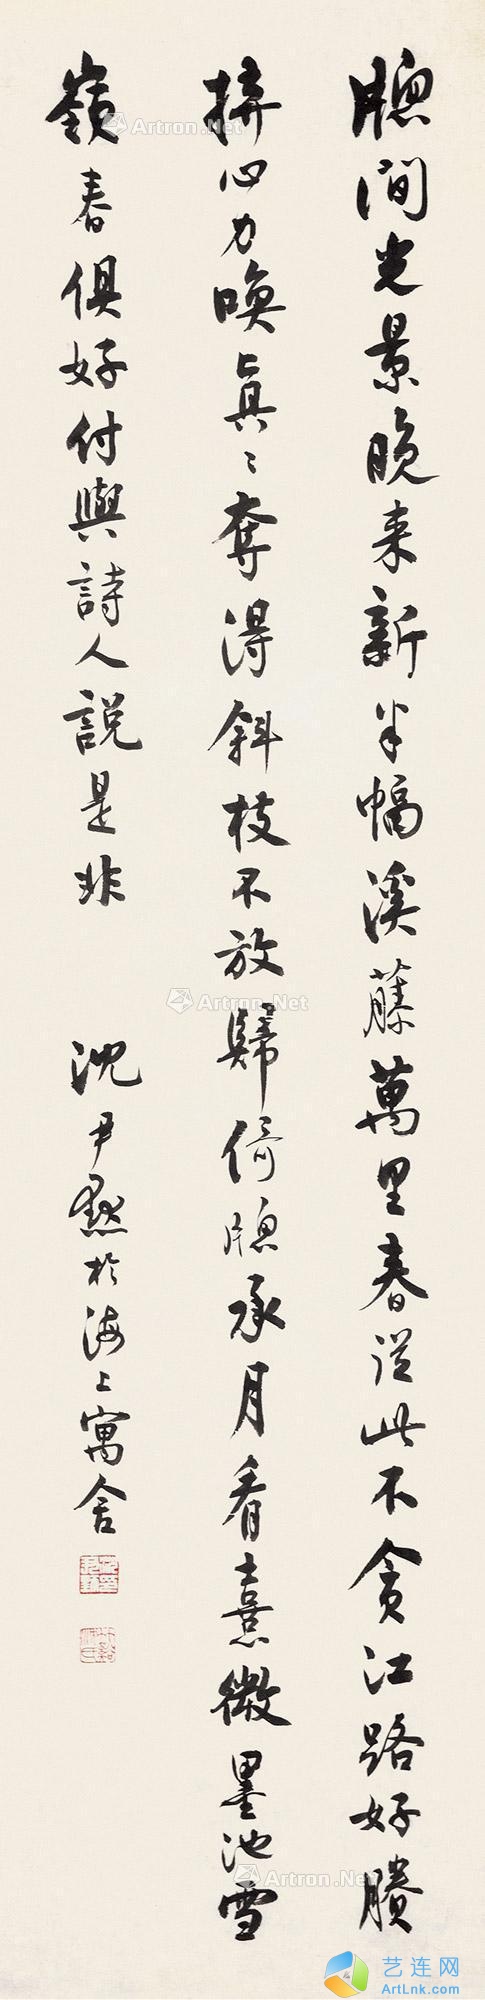 牕間光景晚来新半幅溪藤萬里春從此不貪江路好賸
拚心力喚真〻奪得斜枝不放歸倚牕承月看熹微墨池雪
嶺春俱好付與詩人說是非
沈尹默於海上寓舍
Artron.Net
Artron.Net
Artron.Net
艺连网
ArtLnk.com